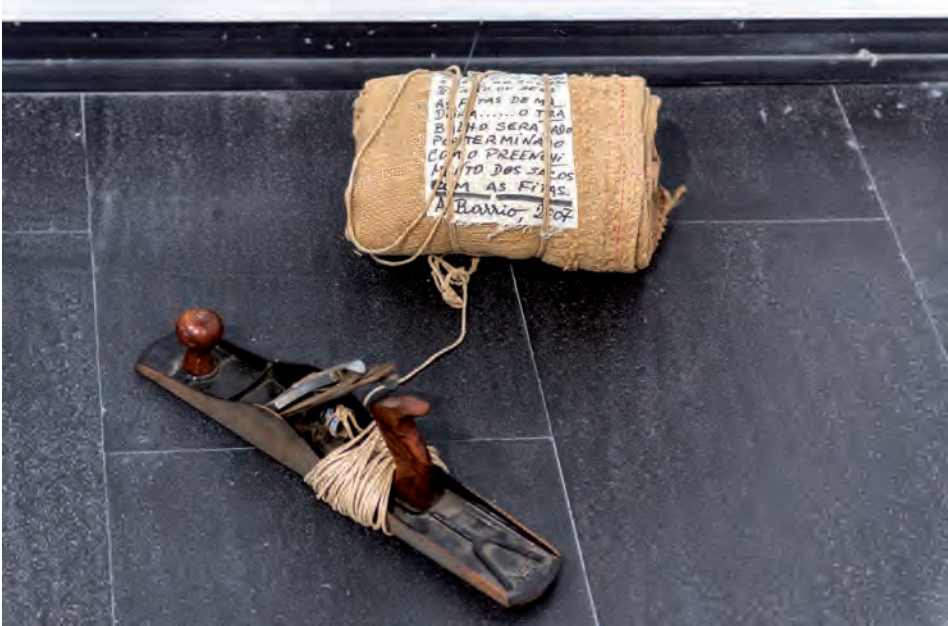 AS FITAS DE MA
DEIRA...... O TRA
BALHO SERÁ DADO
POR TERMINADO
COM O PREENCHI
MENTO DOS SACOS
COM AS FITAS.
A. Barrio, 2007